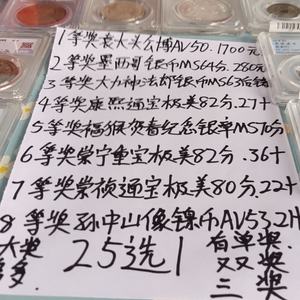 1等奖袁大头公博AV50.1700元
2等奖墨西哥银币MS64分.280元
3等奖大力神法郎银币MS63后铸
4等奖康熙通宝极美82分.27+
5等奖福猴贺春纪念银章MS70分
6等奖崇宁重宝极美82分.36+
7等奖崇祯通宝极美80分.22+
8等奖孙中山像镍币AV53.2H
大奖 25选1 有单奖
多 双奖
三奖